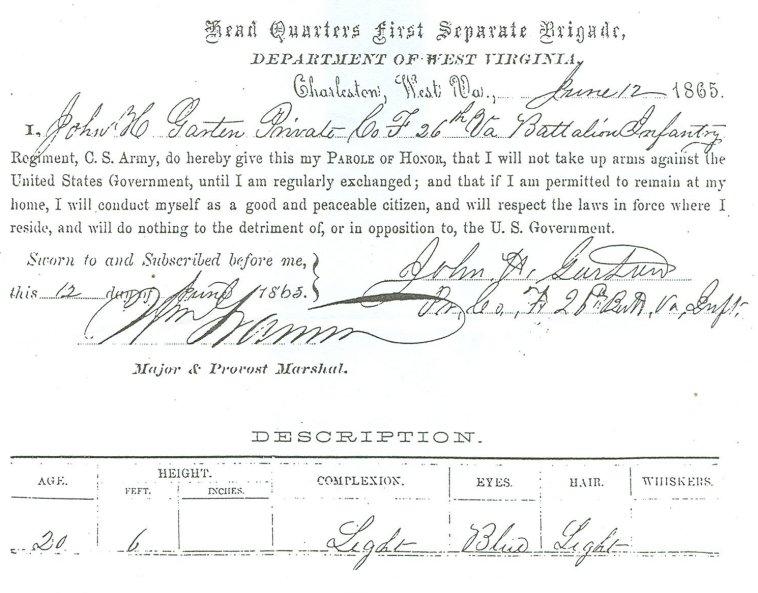 Head Quarters First Separate Brigade,
DEPARTMENT OF WEST VIRGINIA,
Charleston, West Va., June 12 1865.
I, John H Garten Private Co F 26th Va Battalion Infantry
Regiment, C. S. Army, do hereby give this my PAROLE OF HONOR, that I will not take up arms against the
United States Government, until I am regularly exchanged; and that if I am permitted to remain at my
home, I will conduct myself as a good and peaceable citizen, and will respect the laws in force where I
reside, and will do nothing to the detriment of, or in opposition to, the U. S. Government.
Sworn to and Subscribed before me,
this 12 day of June 1865.
John H.
Co, F 26th Batt, Va, Inft.
Major & Provost Marshal.
DESCRIPTION.
AGE. HEIGHT. COMPLEXION. EYES. HAIR. WHISKERS.
FEET. INCHES.
20 6 Light Blue Light